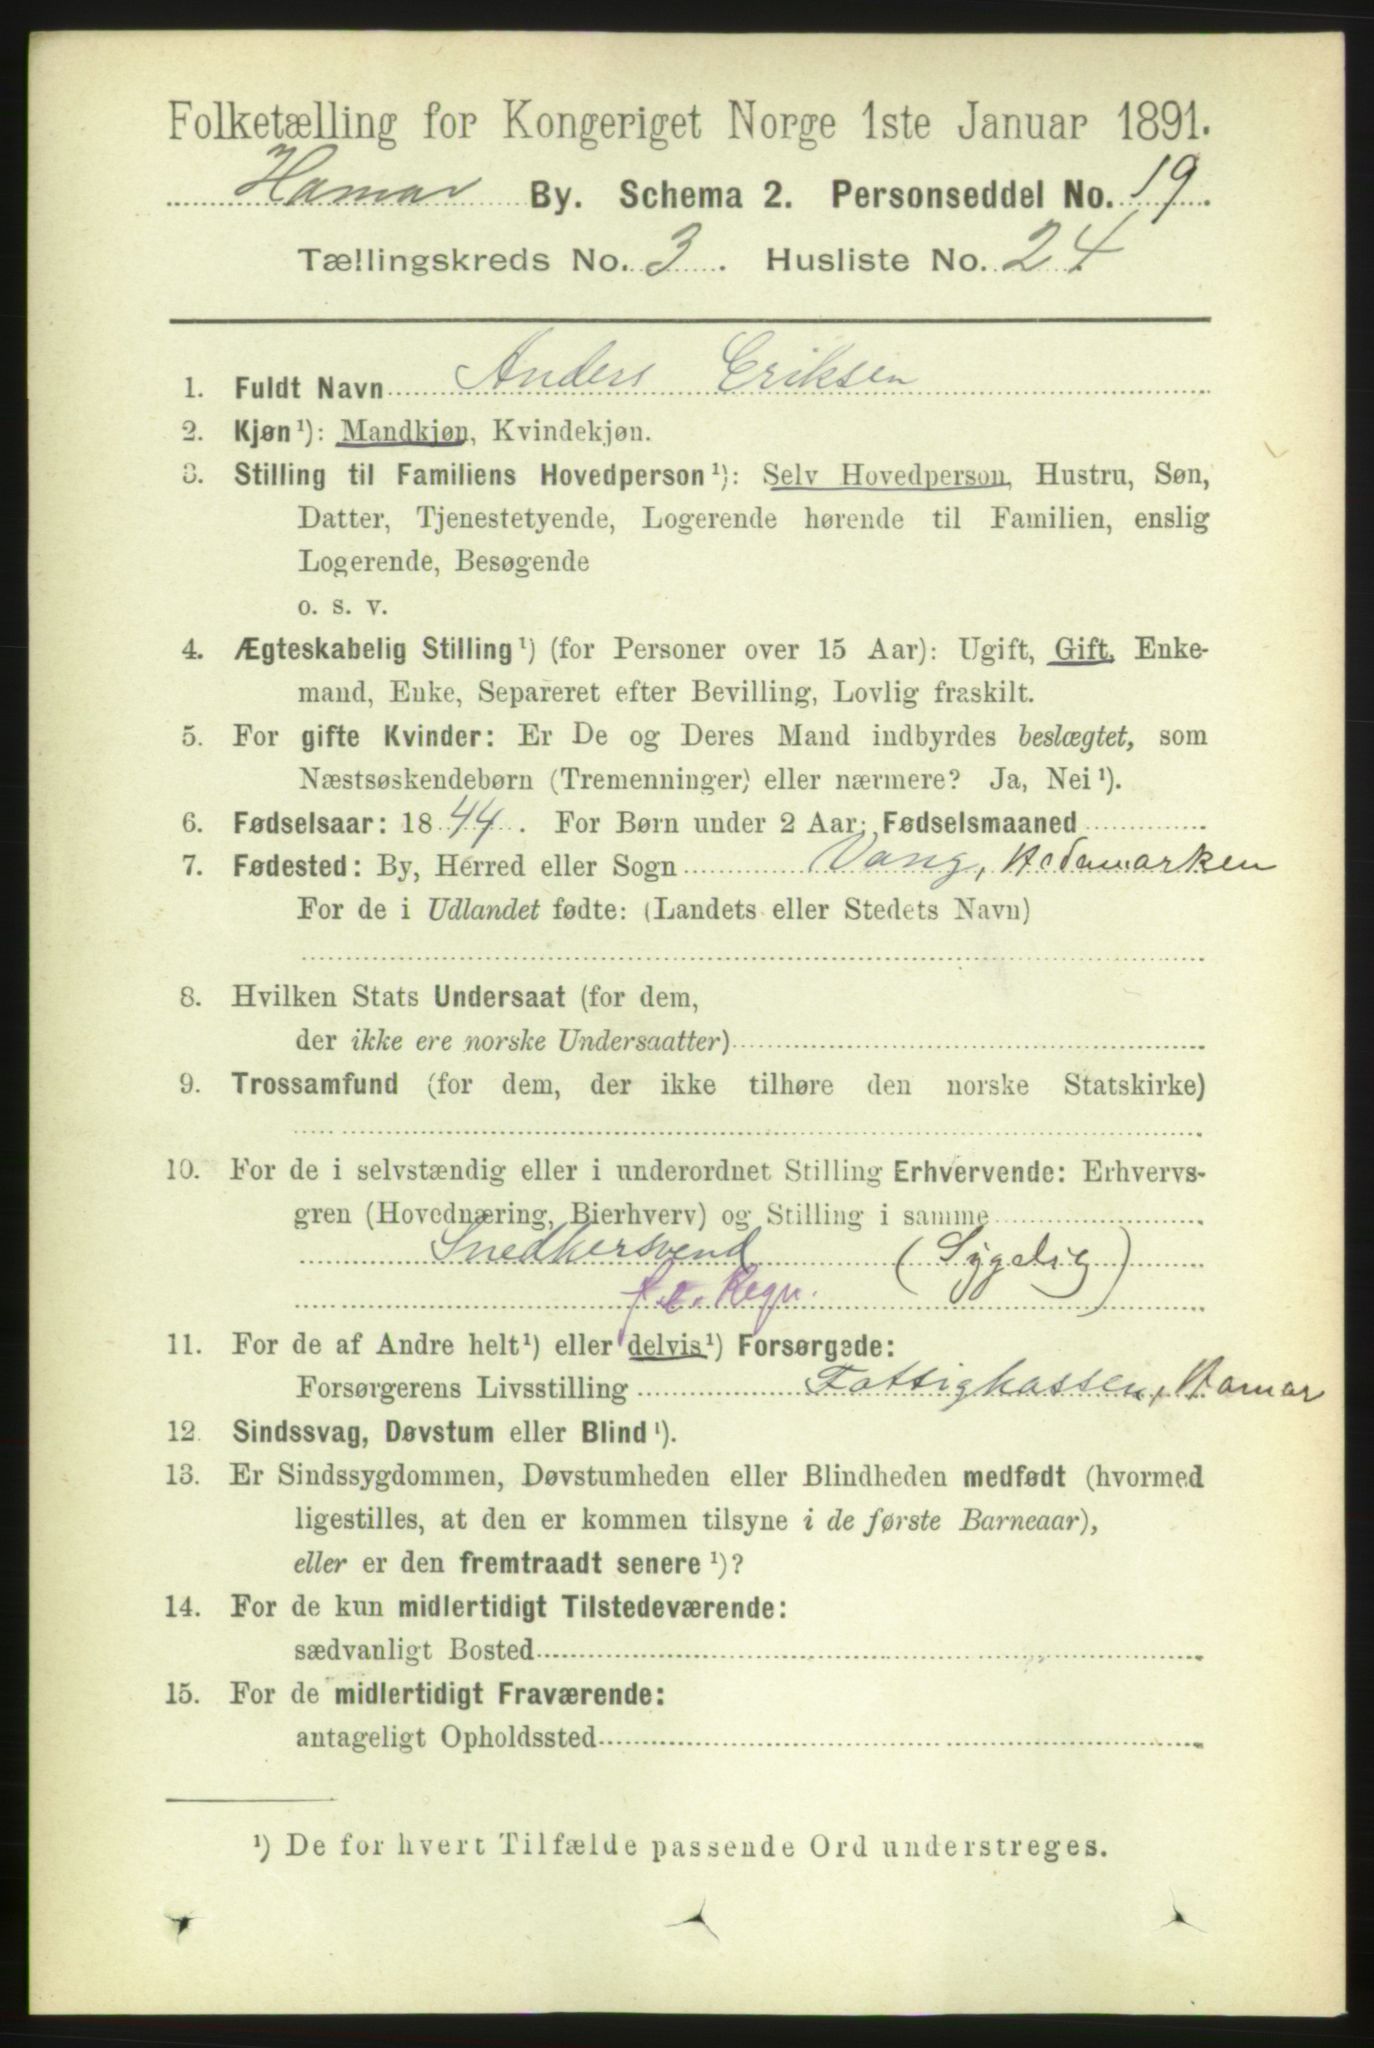 Folketælling for Kongeriget Norge 1ste Januar 1891.
Hamar By. Schema 2. Personseddel No. 19.
Tællingskreds No. 3. Husliste No. 24
1. Fuldt Navn Anders Eriksen
2. Kjøn¹): Mandkjøn, Kvindekjøn.
3. Stilling til Familiens Hovedperson¹): Selv Hovedperson, Hustru, Søn,
Datter, Tjenestetyende, Logerende hørende til Familien, enslig
Logerende, Besøgende
o. s. v.
4. Ægteskabelig Stilling¹) (for Personer over 15 Aar): Ugift, Gift, Enke-
mand, Enke, Separeret efter Bevilling, Lovlig fraskilt.
5. For gifte Kvinder: Er De og Deres Mand indbyrdes beslægtet, som
Næstsøskendebørn (Tremenninger) eller nærmere? Ja, Nei¹).
6. Fødselsaar: 1844. For Børn under 2 Aar: Fødselsmaaned
7. Fødested: By, Herred eller Sogn Vang, Hedemarken
For de i Udlandet fødte: (Landets eller Stedets Navn)
8. Hvilken Stats Undersaat (for dem,
der ikke ere norske Undersaatter)
9. Trossamfund (for dem, der ikke tilhøre den norske Statskirke)
10. For de i selvstændig eller i underordnet Stilling Erhvervende: Erhvervs-
gren (Hovednæring, Bierhverv) og Stilling i samme
Snedkersvend (Sygelig)
f.t. Regn.
11. For de af Andre helt¹) eller delvis¹) Forsørgede:
Forsørgerens Livsstilling Fattigkassen, Hamar
12. Sindssvag, Døvstum eller Blind¹).
13. Er Sindssygdommen, Døvstumheden eller Blindheden medfødt (hvormed
ligestilles, at den er kommen tilsyne i de første Barneaar),
eller er den fremtraadt senere¹)?
14. For de kun midlertidigt Tilstedeværende:
sædvanligt Bosted
15. For de midlertidigt Fraværende:
antageligt Opholdssted
¹) De for hvert Tilfælde passende Ord understreges.